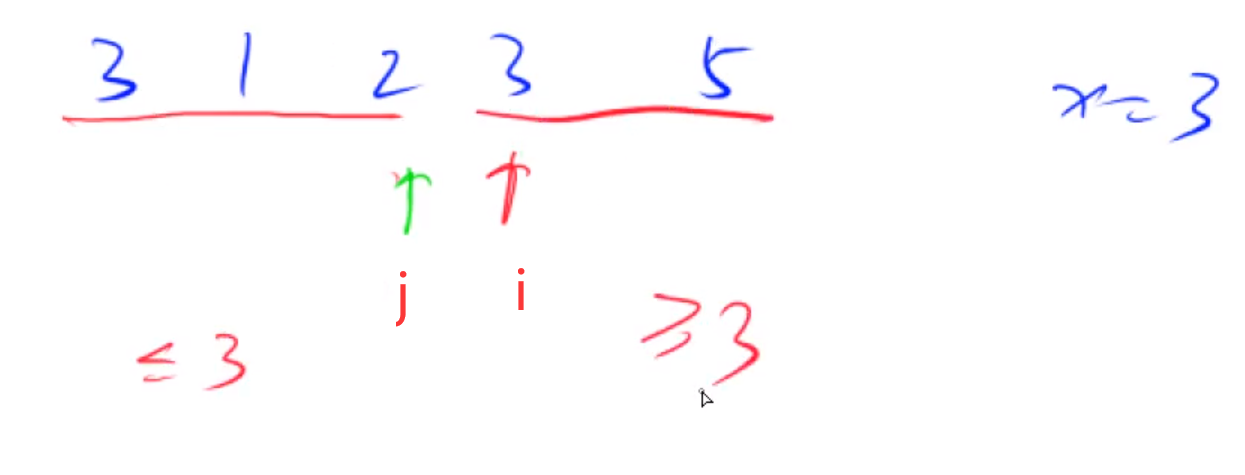 3 1 2 3 5 x=3
j i
≤3 ≥3